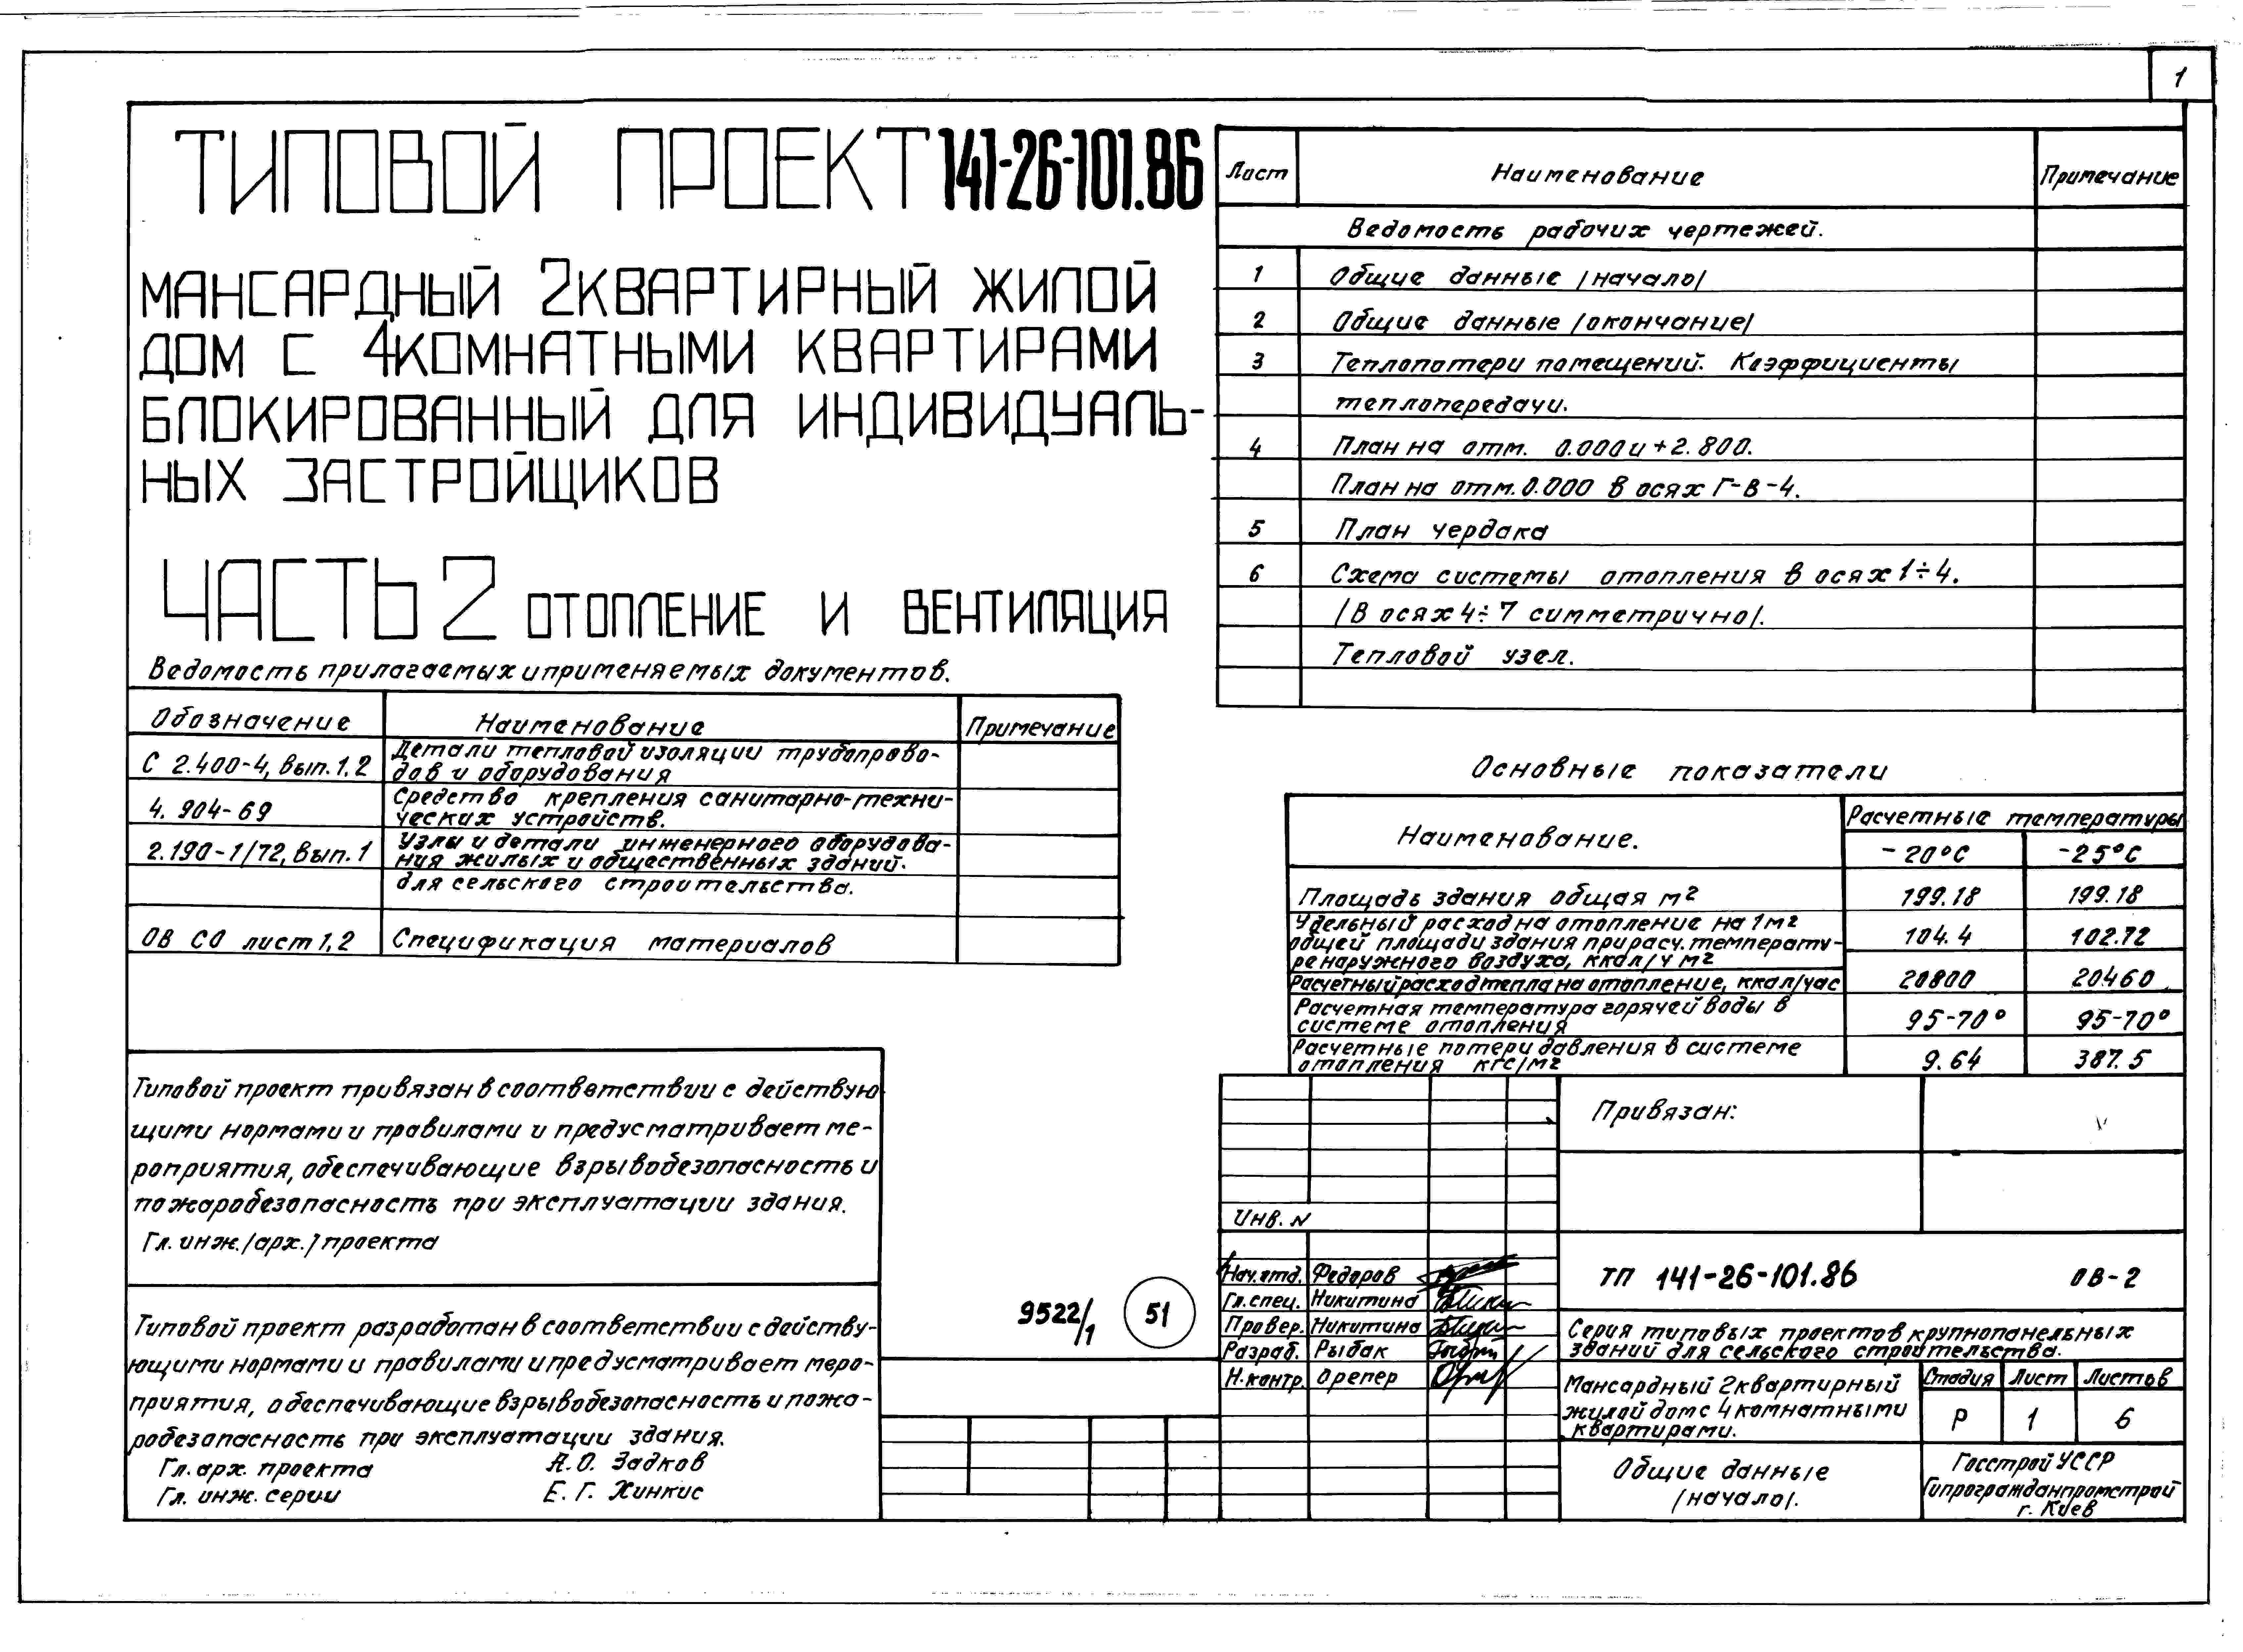 1
ТИПОВОЙ ПРОЕКТ 141-26-101.86
МАНСАРДНЫЙ 2КВАРТИРНЫЙ ЖИЛОЙ
ДОМ С 4КОМНАТНЫМИ КВАРТИРАМИ
БЛОКИРОВАННЫЙ ДЛЯ ИНДИВИДУАЛЬ-
НЫХ ЗАСТРОЙЩИКОВ
ЧАСТЬ 2 ОТОПЛЕНИЕ И ВЕНТИЛЯЦИЯ
Ведомость прилагаемых и применяемых документов.
Обозначение Наименование Примечание
С 2.400-4, вып. 1,2 Детали тепловой изоляции трубопрово-
дов и оборудования
4. 904-69 Средство крепления санитарно-техни-
ческих устройств.
2.190-1/72, вып. 1 Узлы и детали инженерного оборудова-
ния жилых и общественных зданий.
для сельского строительства.
ОВ СО лист 1,2 Спецификация материалов
Типовой проект привязан в соответствии с действую-
щими нормами и правилами и предусматривает ме-
роприятия, обеспечивающие взрывобезопасность и
пожаробезопасность при эксплуатации здания.
Гл. инж. /арх./ проекта
Типовой проект разработан в соответствии с действу-
ющими нормами и правилами и предусматривает меро-
приятия, обеспечивающие взрывобезопасность и пожа-
робезопасность при эксплуатации здания.
Гл. арх. проекта А.О. Задков
Гл. инж. серии Е. Г. Хинкис
9522/1 51
Лист Наименование Примечание
Ведомость рабочих чертежей.
1 Общие данные /начало/
2 Общие данные /окончание/
3 Теплопотери помещений. Коэффициенты
теплопередачи.
4 План на отм. 0.000 и +2.800.
План на отм. 0.000 в осях Г-В-4.
5 План чердака
6 Схема системы отопления в осях 1÷4.
/В осях 4÷7 симметрично/.
Тепловой узел.
Основные показатели
Наименование. Расчетные температуры
-20°С -25°С
Площадь здания общая м2 199.18 199.18
Удельный расход на отопление на 1м2
общей площади здания при расч. температу-
ре наружного воздуха, ккал/ч м2 104.4 102.72
Расчетный расход тепла на отопление, ккал/час 20800 20460
Расчетная температура горячей воды в
системе отопления 95-70° 95-70°
Расчетные потери давления в системе
отопления кгс/м2 9.64 387.5
Привязан:
Инв. N
Нач. отд. Федоров
Гл. спец. Никитина
Провер. Никитина
Разраб. Рыбак
Н. контр. Орепер
ТП 141-26-101.86 ОВ-2
Серия типовых проектов крупнопанельных
зданий для сельского строительства.
Мансардный 2квартирный
жилой дом с 4 комнатными
квартирами.
Стадия Лист Листов
Р 1 6
Общие данные
/начало/.
Госстрой УССР
Гипрогражданпромстрой
г. Киев